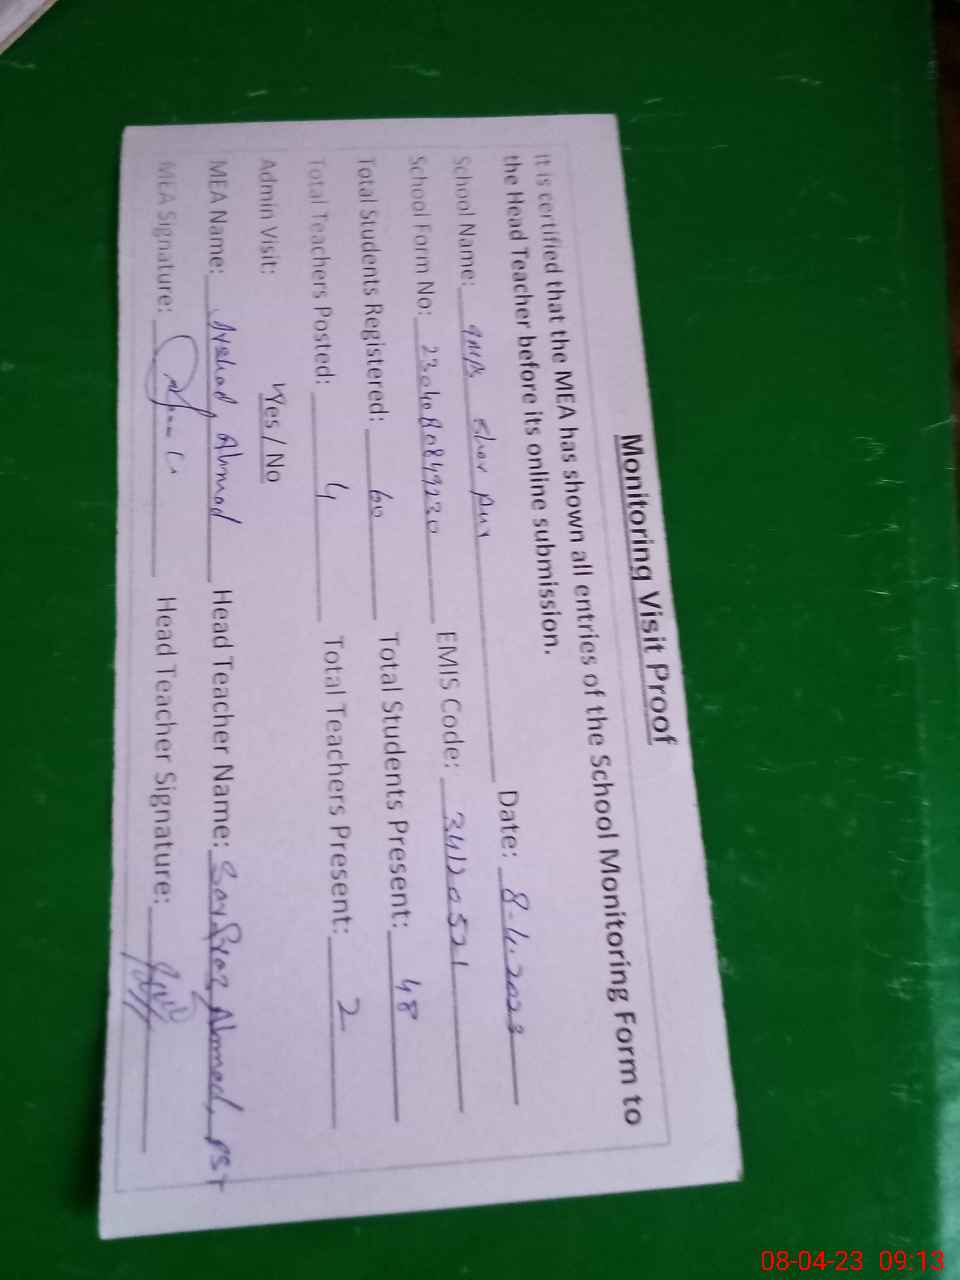 Monitoring Visit Proof
It is certified that the MEA has shown all entries of the School Monitoring Form to
the Head Teacher before its online submission.
School Name: Sher pur Date: 8.4.2023
School Form No: EMIS Code: 34120521
Total Students Registered: 60 Total Students Present: 48
Total Teachers Posted: 4 Total Teachers Present: 2
Admin Visit: Yes / No
MEA Name: Arshad Ahmad Head Teacher Name: Sarfraz Ahmed, PST
MEA Signature: Head Teacher Signature:
08-04-23 09:13